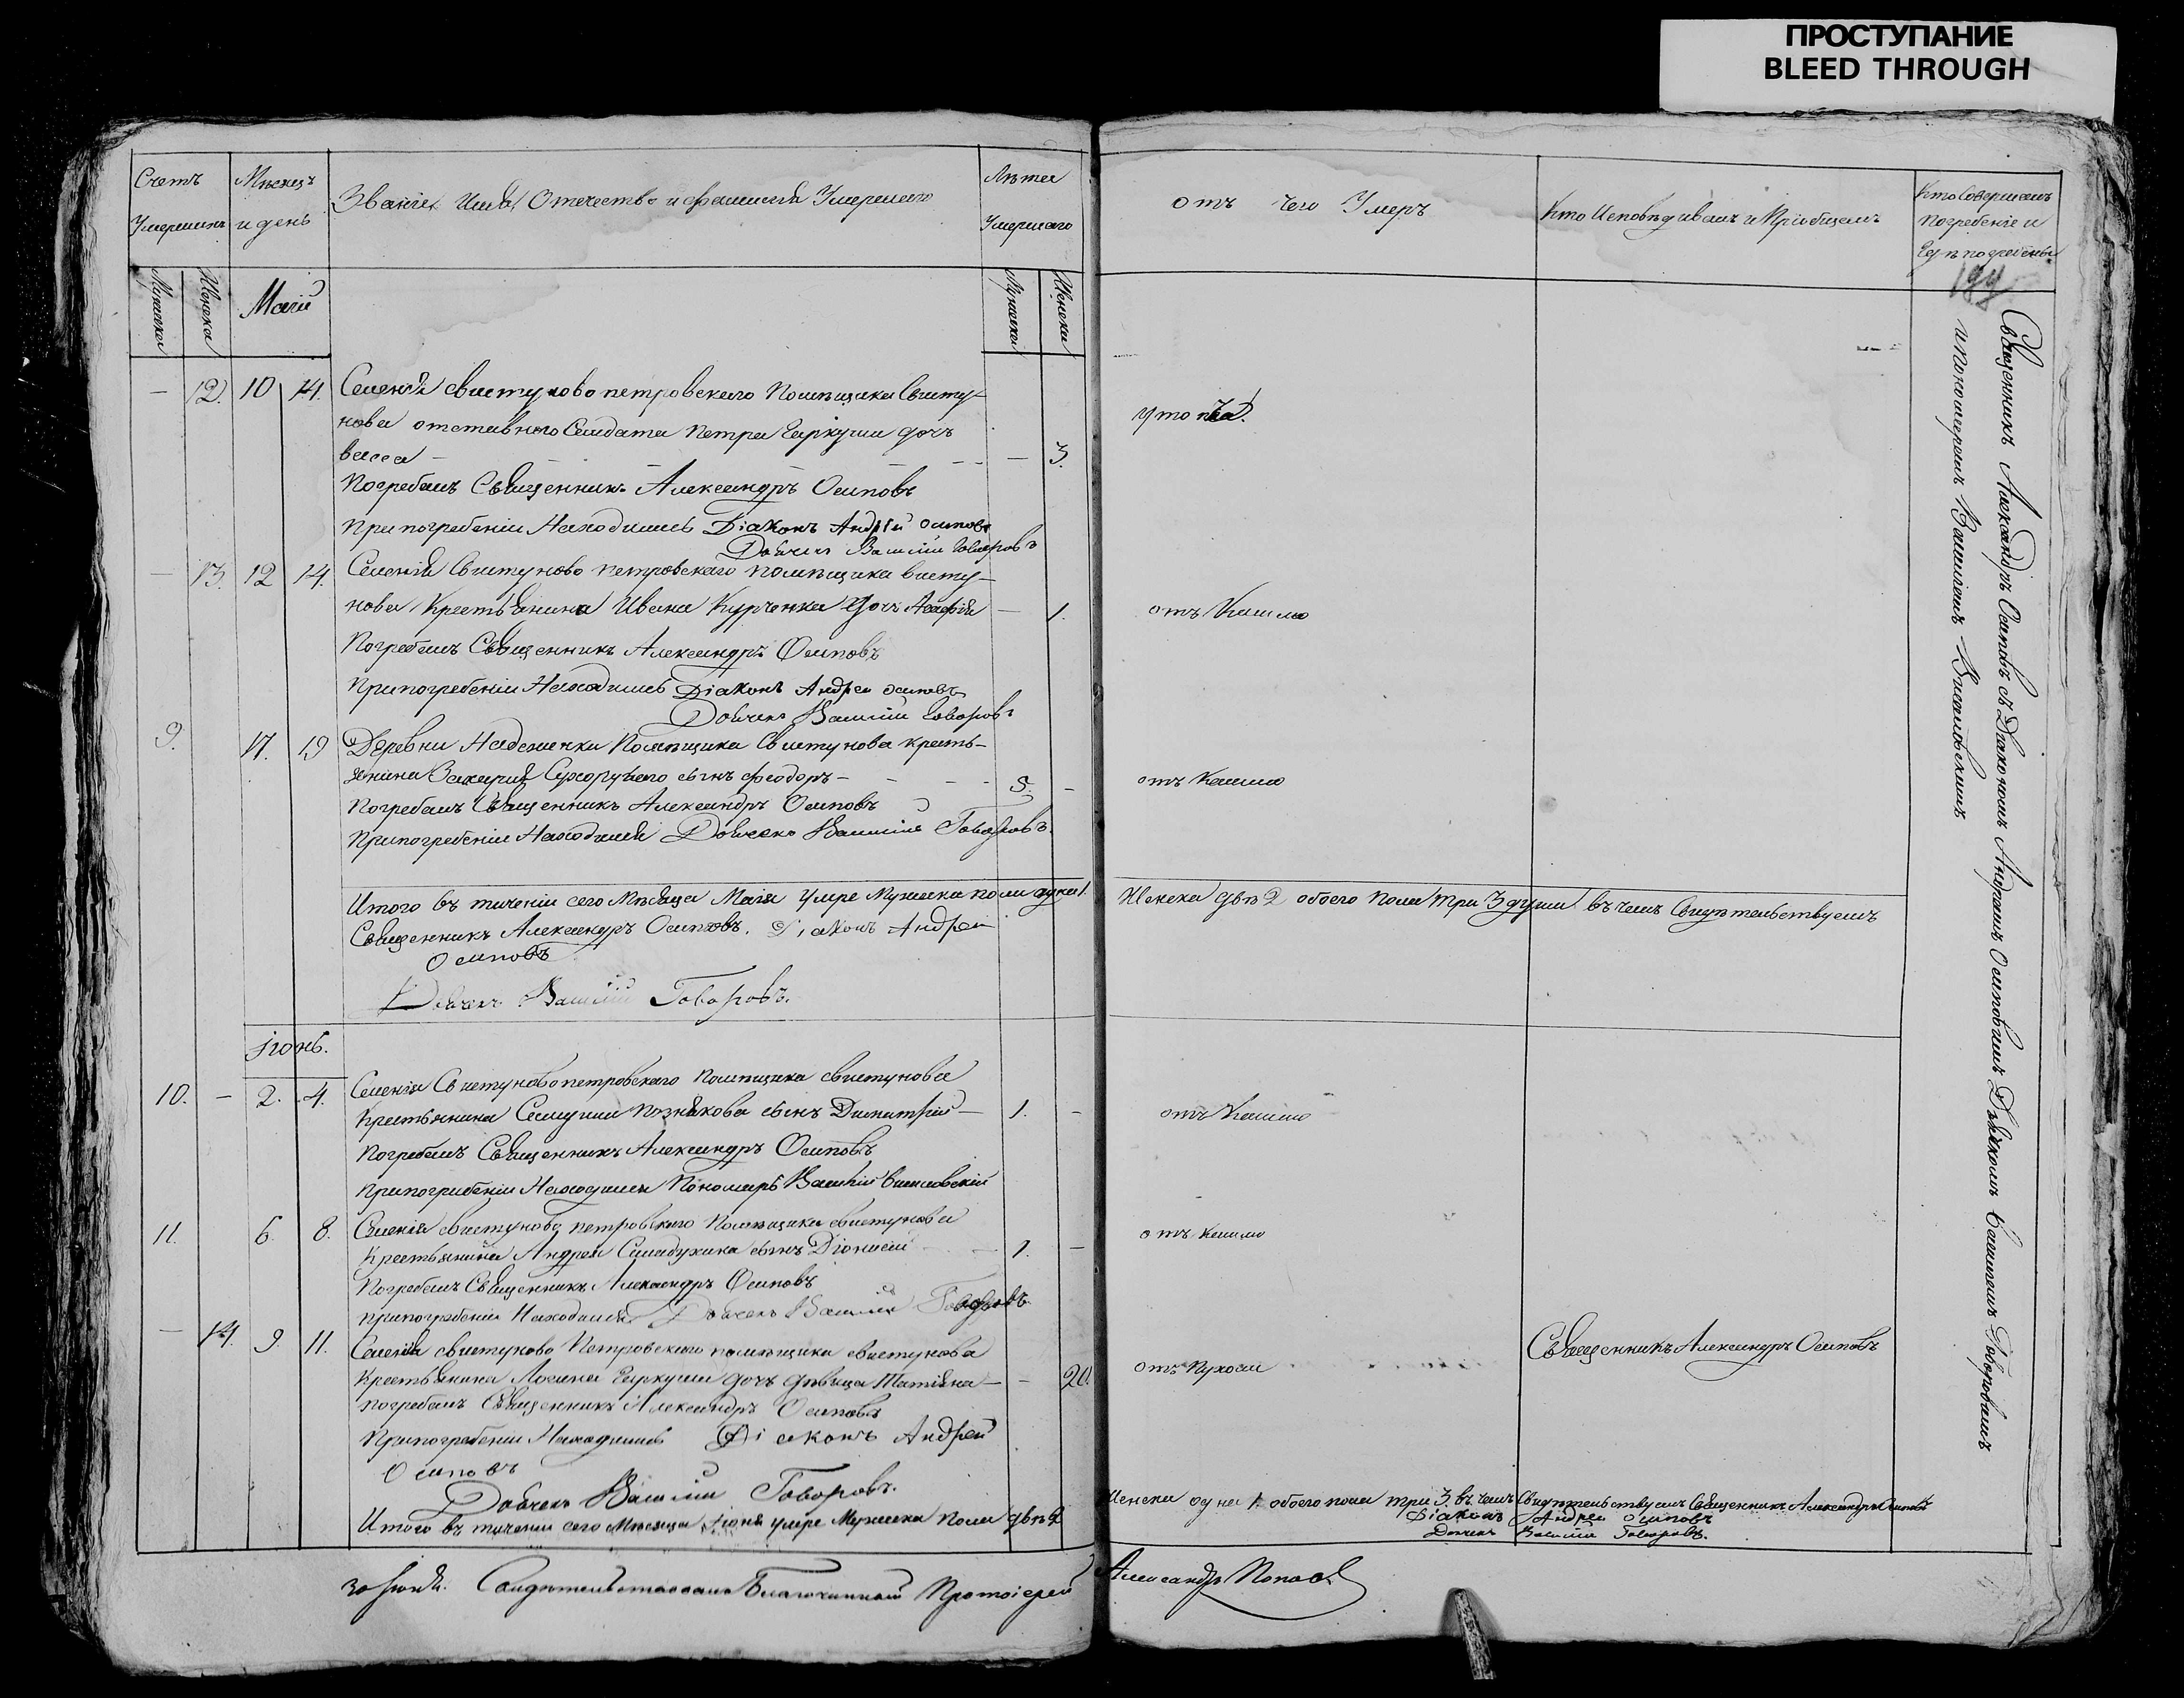 ПРОСТУПАНИЕ
BLEED THROUGH
Счетъ
Умершихъ
Мѣсяцъ
и день
Званіе, Имя, Отечество и фамилія Умершаго
Лѣта
Умершаго
Мужеска
Женска
Маій
Мужеска
Женска
— 12. 10 14. Селенія Свистуново петровскаго Помѣщика Свисту-
нова отставнаго Салдата Петра Гаркуши дочь
васса — — 3.
Погребалъ Священникъ Александръ Осиповъ
При погребеніи Находились Діаконъ Андрей Осиповъ
Дьячекъ Василій Говоровъ
— 13. 12 14. Селенія Свистуново петровскаго помѣщика Свисту-
нова Крестьянина Ивана Курченка дочь — 1.
Погребалъ Священникъ Александръ Осиповъ
При погребеніи Находились Діаконъ Андрей Осиповъ
Дьячекъ Василій Говоровъ
9. 17. 19 Деревни Надежечки Помѣщика Свистунова кресть-
янина Захарія Сухорукаго сынъ Феодоръ — 5. —
Погребалъ Священникъ Александръ Осиповъ
При погребеніи Находился Дьячекъ Василій Говоровъ
Итого въ теченіи сего Мѣсяца Маія Умре Мужеска пола одна 1.
Священникъ Александръ Осиповъ. Діаконъ Андрей
Осиповъ
Дьячекъ Василій Говоровъ.
Іюнь.
10. — 2. 4. Селенія Свистуново петровскаго помѣщика свистунова
Крестьянина Самуила Познякова сынъ Димитрій — 1. —
Погребалъ Священникъ Александръ Осиповъ
При погребеніи Находился Пономарь Василій
11. 6. 8. Селенія свистуново петровскаго Помѣщика свистунова
Крестьянина Андрея сынъ Діонисій — 1. —
Погребалъ Священникъ Александръ Осиповъ
При погребеніи Находился Дьячекъ Василій Говоровъ
— 14. 9. 11. Селенія свистуново Петровскаго помѣщика свистунова
Крестьянина Гаркуши дочь дѣвица Татіяна — — 20.
погребалъ Священникъ Александръ Осиповъ
При погребеніи Находились Діаконъ Андрей
Осиповъ
Дьячекъ Василій Говоровъ.
Итого въ теченіи сего Мѣсяца Іюня умре Мужеска пола двѣ 2
30 Іюня. Свидѣтельствовалъ Благочинный Протоіерей
отъ чего Умеръ
Кто Исповѣдывалъ и Пріобщалъ
Кто Совершалъ
Погребеніе и
Гдѣ погребены
утопла.
отъ Кашлю
отъ Кашлю
Женска двѣ 2 обоего пола три 3 души въ чемъ Свидѣтельствуемъ
отъ Кашлю
отъ Кашлю
отъ Священникъ Александръ Осиповъ
Женска одна 1. обоего пола три 3. въ чемъ Свидѣтельствуемъ Священникъ Александръ Осиповъ
Діаконъ Андрей Осиповъ
Дьячекъ Василій Говоровъ.
Александръ Поповъ
Священникъ Александръ Осиповъ съ Діакономъ Андреемъ Осиповымъ Дьячкомъ Василіемъ Говоровымъ
и пономаремъ Василіемъ